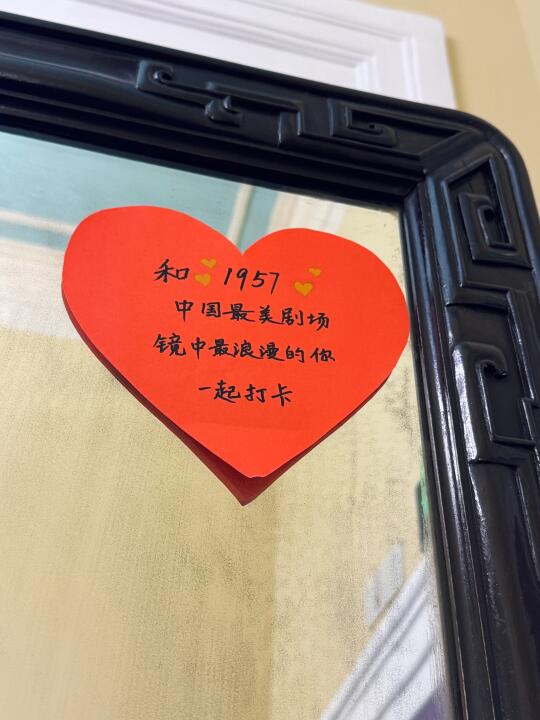 和 1957
中国最美剧场
镜中最浪漫的你
一起打卡